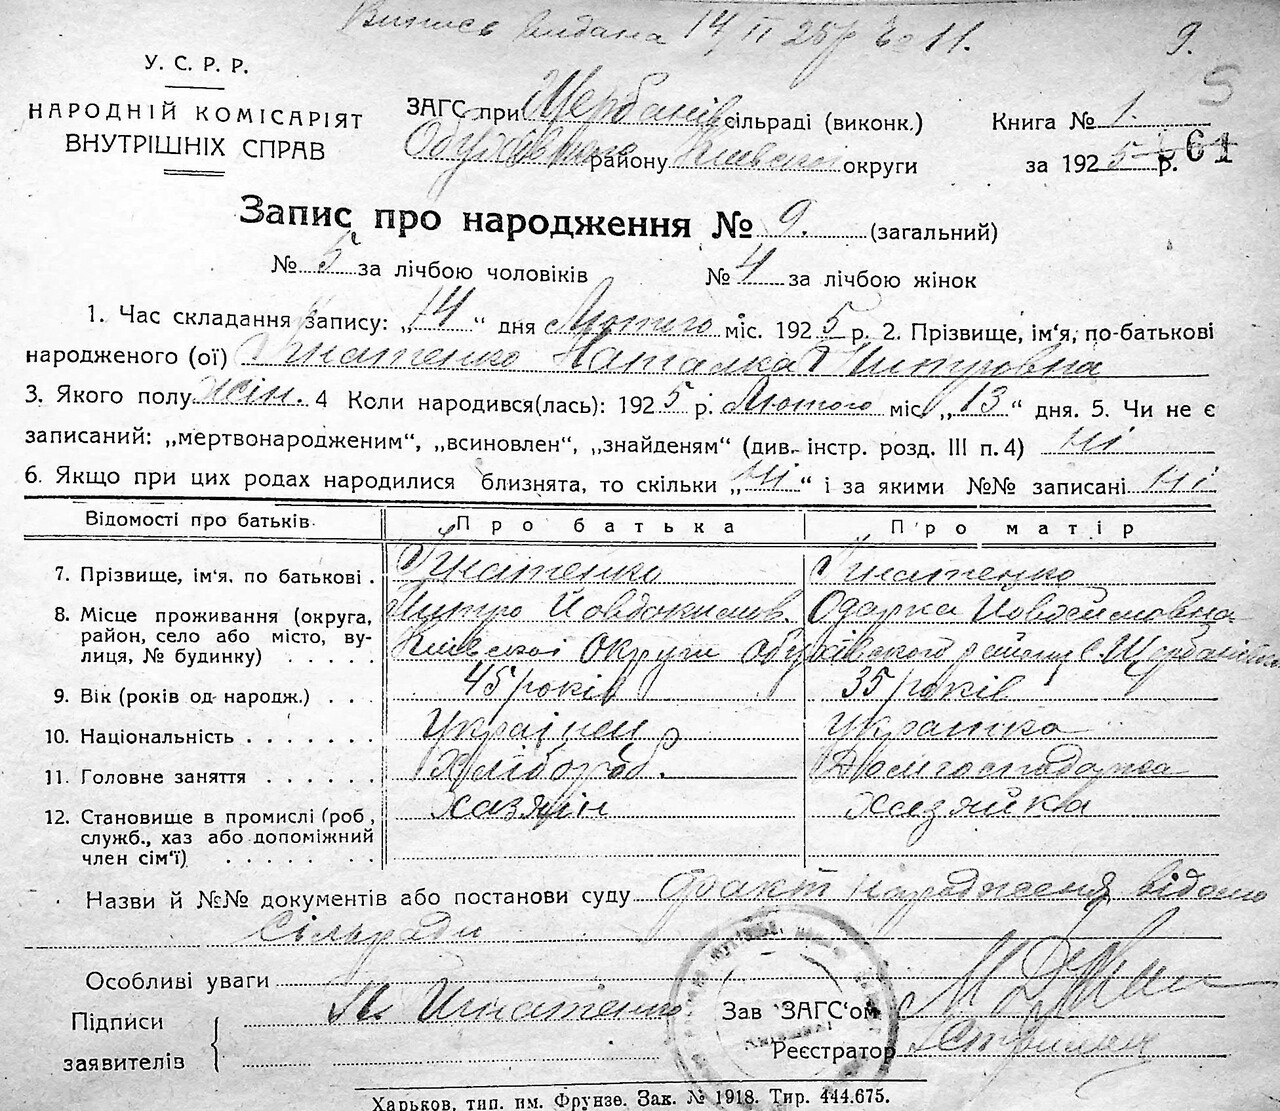 Випись видана 14 II 25 р № 11. 9.
5
У. С. Р. Р.
НАРОДНІЙ КОМІСАРІЯТ
ВНУТРІШНІХ СПРАВ
ЗАГС при Щербанів сільраді (виконк.)
Обухівського району Київської округи
Книга № 1.
за 1925 р. 61
Запис про народження № 9. (загальний)
№ 5 за лічбою чоловіків № 4 за лічбою жінок
1. Час складання запису: „14“ дня Лютого міс. 1925 р. 2. Прізвище, ім'я, по-батькові
народженого (ої) Гнатенко Наталка Митровна
3. Якого полу жін. 4 Коли народився(лась): 1925 р. Лютого міс. „13“ дня. 5. Чи не є
записаний: „мертвонародженим“, „всиновлен“, „знайденям“ (див. інстр. розд. III п. 4) ні
6. Якщо при цих родах народилися близнята, то скільки „ні“ і за якими №№ записані ні
Відомості про батьків. Про батька Про матір
7. Прізвище, ім'я, по батькові . Гнатенко Гнатенко
Митро Йовдокимов. Одарка
8. Місце проживання (округа, район, село або місто, вулиця, № будинку) . . . . . Київської Округи Обухівського району с.
9. Вік (років од народж.) . . . 45 років 35 років
10. Національність . . . . . . . Українец Украінка
11. Головне заняття . . . . . . Хлібороб. Домгосподарка
12. Становище в промислі (роб, служб., хаз або допоміжний член сім'ї) . . . . . . Хазяїн хазяйка
Назви й №№ документів або постанови суду факт народження відомо
Сільради
Особливі уваги
Підписи
заявителів
Гнатенко
Зав ЗАГС'ом
Реєстратор
Харьков, тип. им. Фрунзе. Зак. № 1918. Тир. 444.675.